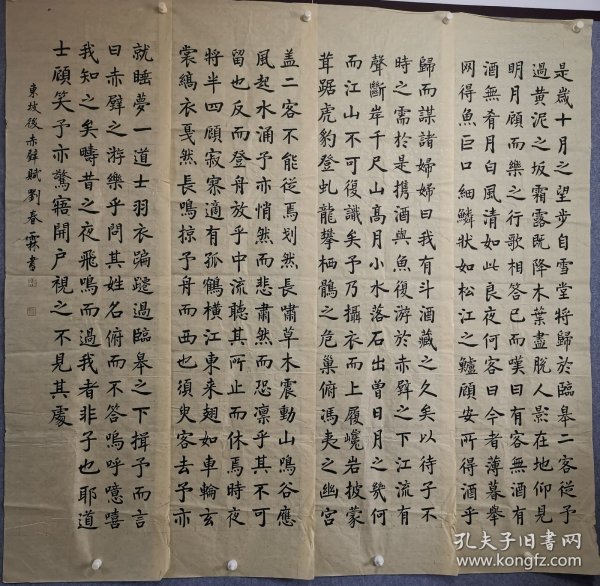 是歲十月之望步自雪堂將歸於臨皋二客從予
過黃泥之坂霜露既降木葉盡脫人影在地仰見
明月顧而樂之行歌相答已而嘆曰有客無酒有
酒無肴月白風清如此良夜何客曰今者薄暮舉
网得魚巨口細鱗狀如松江之鱸顧安所得酒乎
歸而謀諸婦婦曰我有斗酒藏之久矣以待子不
時之需於是携酒與魚復游於赤壁之下江流有
聲斷岸千尺山高月小水落石出曾日月之幾何
而江山不可復識矣予乃攝衣而上履巉岩披蒙
茸踞虎豹登虬龍攀栖鶻之危巢俯馮夷之幽宮
盖二客不能從焉划然長嘯草木震動山鳴谷應
風起水涌予亦悄然而悲肅然而恐凛乎其不可
留也反而登舟放乎中流聽其所止而休焉時夜
將半四顧寂寥適有孤鶴橫江東来翅如車輪玄
裳縞衣戛然長鳴掠予舟而西也須臾客去予亦
就睡夢一道士羽衣蹁躚過臨皋之下揖予而言
曰赤壁之游樂乎問其姓名俯而不答嗚呼噫嘻
我知之矣疇昔之夜飛鳴而過我者非子也耶道
士顧笑予亦驚寤開户視之不見其處
東坡後赤壁賦劉春霖書
孔夫子旧书网
www.kongfz.com